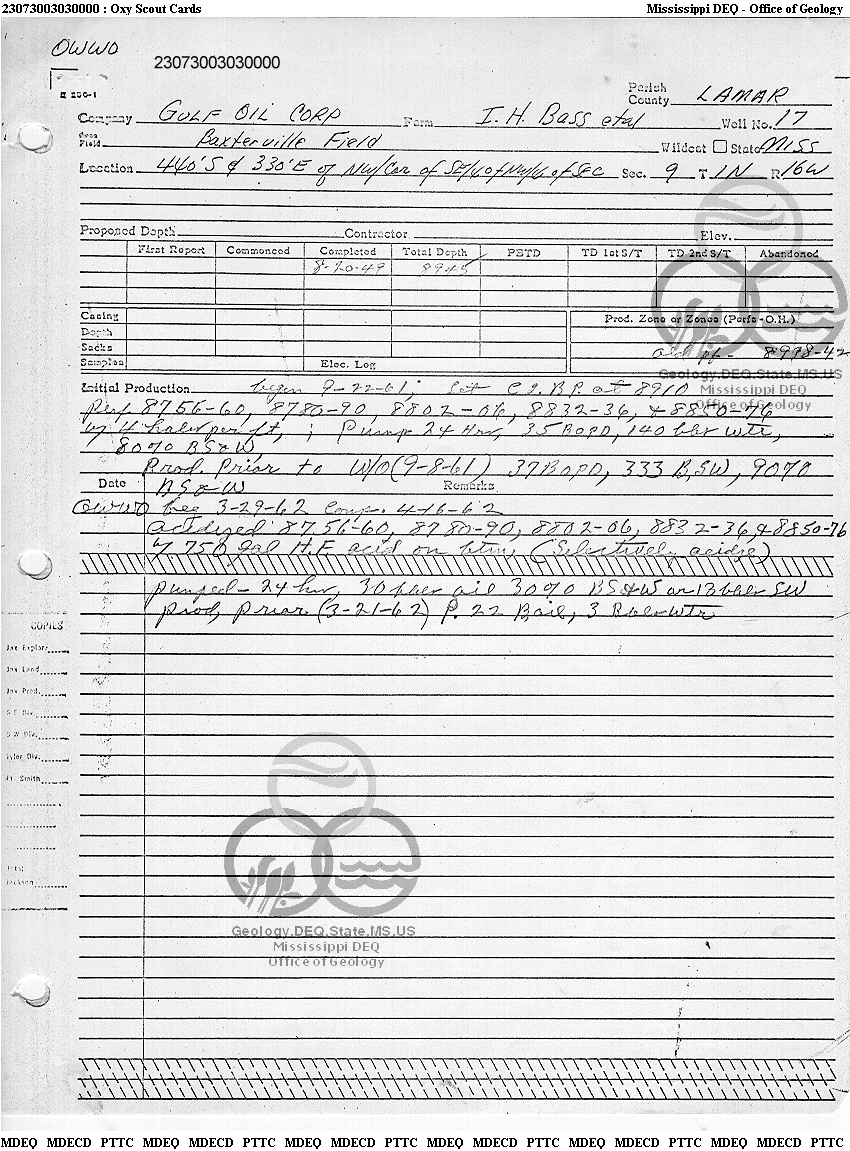 23073003030000 : Oxy Scout Cards Mississippi DEQ - Office of Geology
OWWO
23073003030000
Parish
County LAMAR
Company GULF OIL CORP Farm I. H. Bass etal Well No. 17
Area
Field Baxterville Field Wildcat State MISS
Location 440'S & 330'E of NW/Cor of SE/4 of NW/4 of SEC Sec. 9 T 1N R 16W
Proposed Depth Contractor Elev.
First Report Commenced Completed Total Depth PBTD TD 1st S/T TD 2nd S/T Abandoned
8-20-49 8945
Casing Prod. Zone or Zones (Perfs-O.H.)
Depth
Sacks old pf- 8938-42
Samples Elec. Log
Geology.DEQ.State.MS.US
Mississippi DEQ
Office of Geology
Initial Production began 9-22-61; set C.I.B.P. at 8910
perf 8756-60, 8780-90, 8802-06, 8832-36, & 8850-76
w/ 4 holes per ft, ; Pump 24 Hrs, 35 BOPD, 140 bbls wtr,
80% BS&W
Prod. Prior to W/O (9-8-61) 37 BOPD, 333 B,SW, 90%
Date BS&W Remarks
OWWO beg 3-29-62 Comp. 4-16-62
acidized 8756-60, 8780-90, 8802-06, 8832-36, & 8850-76
w/ 750 gal H.F. acid on btm, (Selectively acidize)
pumped - 24 hr, 30 bbls oil 30% BS&W or 13 bbls SW
prod, prior (3-21-62) P. 22 B oil, 3 Bbls wtr
COPIES
Jax Explor.
Jax Land
Jax Prod.
S E Div.
S W Div.
Tyler Div.
Ft. Smith
Jackson
Geology.DEQ.State.MS.US
Mississippi DEQ
Office of Geology
MDEQ MDECD PTTC MDEQ MDECD PTTC MDEQ MDECD PTTC MDEQ MDECD PTTC MDEQ MDECD PTTC MDEQ MDECD PTTC